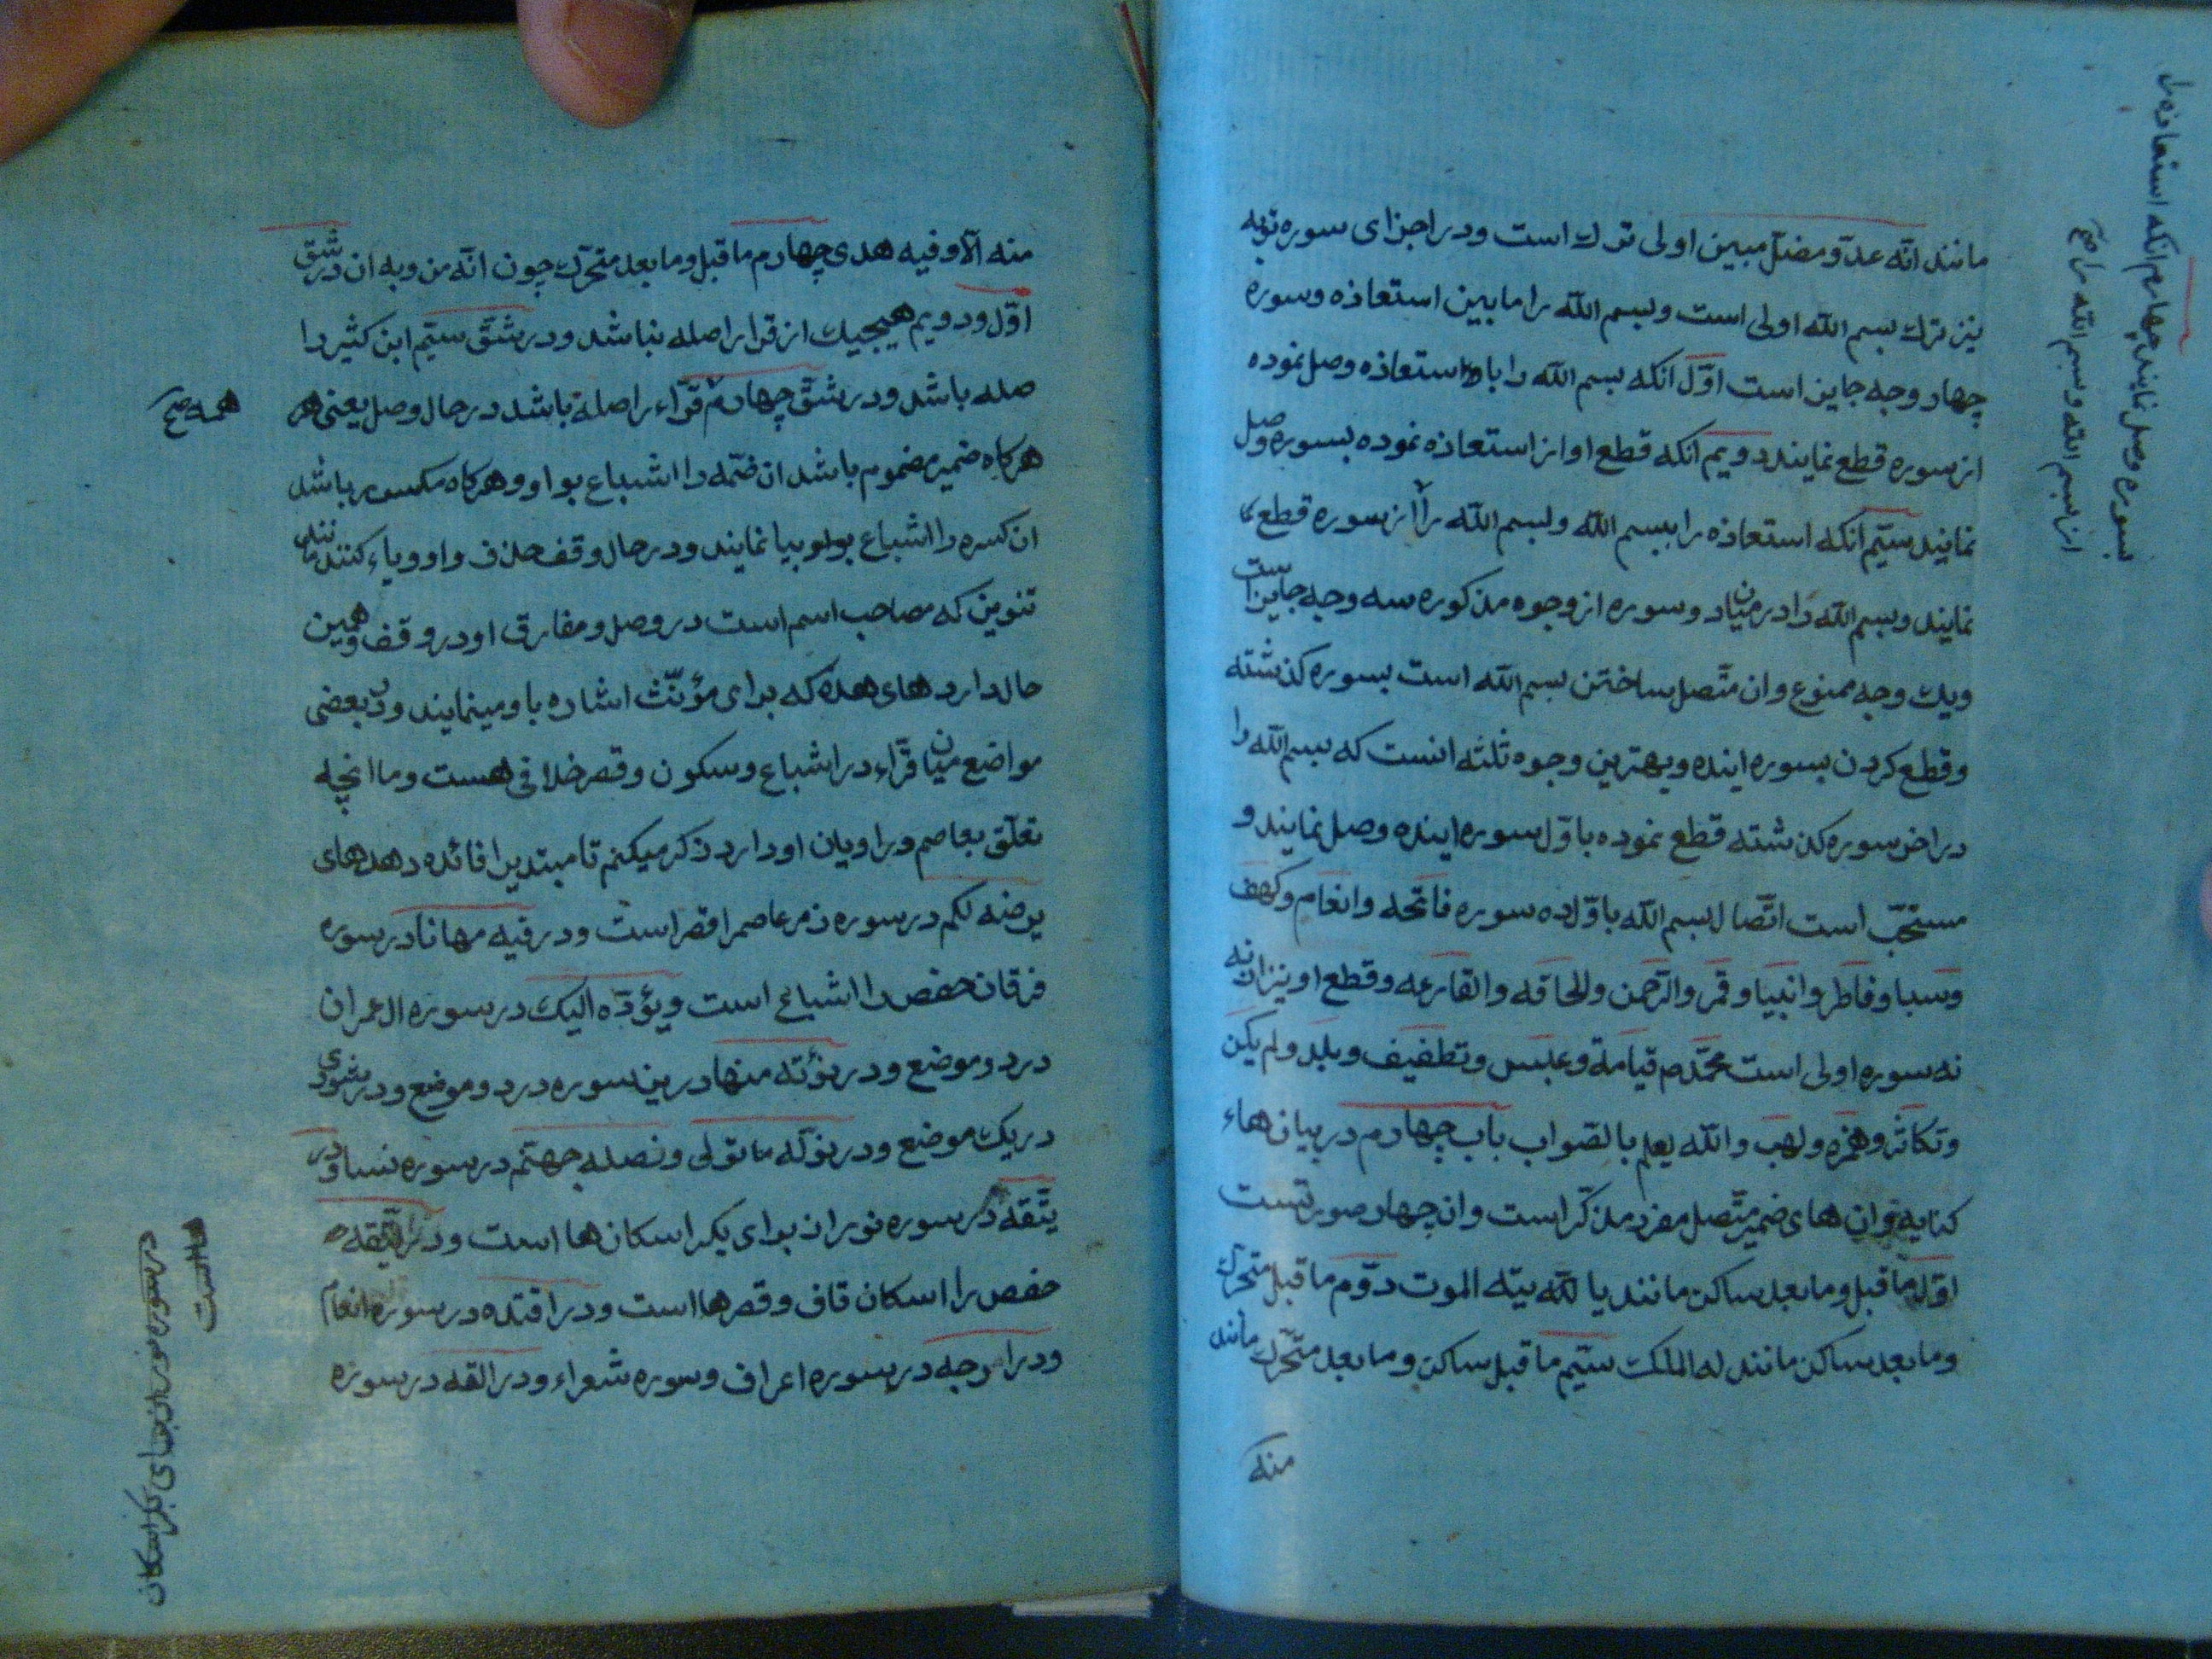 مانند انّه عدّو مضلّ مبین اولی ترك است ودر اجزای سوره توبه
نیز ترك بسم الله اولی است وبسم الله را مابین استعاذه وسوره
چهار وجه جایز است اوّل انکه بسم الله را با استعاذه وصل نموده
از سوره قطع نمایند دویم انکه قطع او از استعاذه نموده بسوره وصل
نمایند سیّم انکه استعاذه را ببسم الله وبسم الله را از سوره قطع
نمایند وبسم الله را در میان دو سوره از وجوه مذکوره سه وجه جایز است
ویك وجه ممنوع وان متّصل ساختن بسم الله است بسوره کذشته
وقطع کردن بسوره اینده وبهترین وجوه ثلثه انست که بسم الله را
در اخر سوره کذشته قطع نموده باوّل سوره اینده وصل نمایند و
مستحبّ است اتّصال بسم الله باوّل ده سوره فاتحه وانعام وکهف
وسبا وفاطر وانبیا وقمر والرّحمن والحاقه والقارعه وقطع او نیز از نه
نه سوره اولی است محمّدم قیامة وعبس وتطفیف وبلد ولم یکن
وتکاثر وهمزه ولهب والله یعلم بالصّواب باب چهارم در بیان هاء
کنایه وان های ضمیر متّصل مفرد مذکّر است وان چهار صورتست
اوّل ماقبل ومابعد ساکن مانند یا للّه بیّته الموت دوّم ماقبل متحرّك
ومابعد ساکن مانند له الملك سیّم ماقبل ساکن ومابعد متحرّك مانند
منه
چهارم انکه استعاذه را
بسوره وصل نمایند
از بسم الله وبسم الله را صح
منه الّا وفیه هدی چهارم ماقبل ومابعد متحرّك چون انّه من وبه ان در شق
اوّل ودویم هیچیك از قرا را صله نباشد ودر شقّ سیّم ابن کثیر را
صله باشد ودر شقّ چهارم قرّاء را صله باشد در حال وصل یعنی هر
همه صح
هرکاه ضمیر مضموم باشد ان ضمّه را اشباع بواو وهرکاه مکسور باشد
ان کسره را اشباع بیا نمایند ودر حال وقف حذف واو ویاء کنند مانند
تنوین که مصاحب اسم است در وصل ومفارق او در وقف وهمین
حال دارد های هذه که برای مؤنّث اشاره باو مینمایند ودر بعضی
مواضع میان قرّاء در اشباع وسکون وقصر خلافی هست وما انچه
تعلّق بعاصم وراویان او دارد ذکر میکنم تا مبتدیرا فائده دهد های
یرضه لکم در سوره زمر عاصم را قصر است ودر فیه مهانا در سوره
فرقان حفص را اشباع است ویؤدّه الیك در سوره ال عمران
در دو موضع ودر نؤته منها درین سوره در دو موضع ودر شوری
در یك موضع ودر نولّه ما تولی ونصله جهنّم در سوره نسا ودر
یتّقه در سوره نور از برای بکر اسکان ها است ودر یتّقه
حفص را اسکان قاف وقصر ها است ودر اقتده در سوره انعام
ودر ارجه در سوره اعراف وسوره شعراء ودر القه در سوره
در سوره نور از برای بکر اسکان
ها است